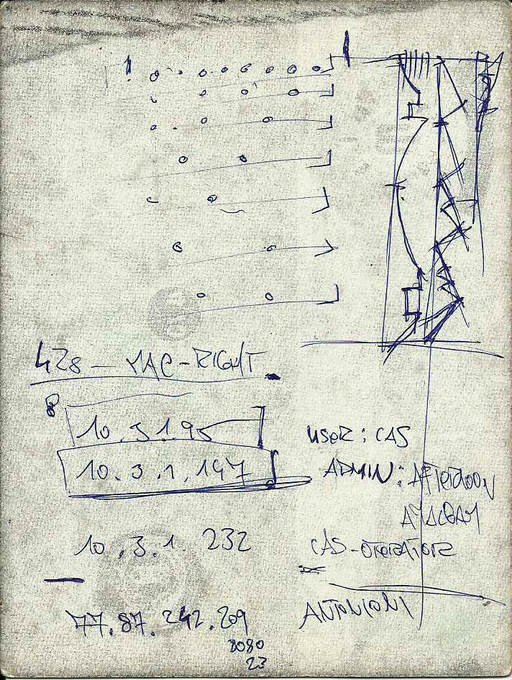 428 - MAC-RIGHT
8
10.3.195
10.3.1.147
USER: CAS
ADMIN:
10.3.1.232
CAS-OPERATORE
77.87.242.209
ANTONIONI
8080
23